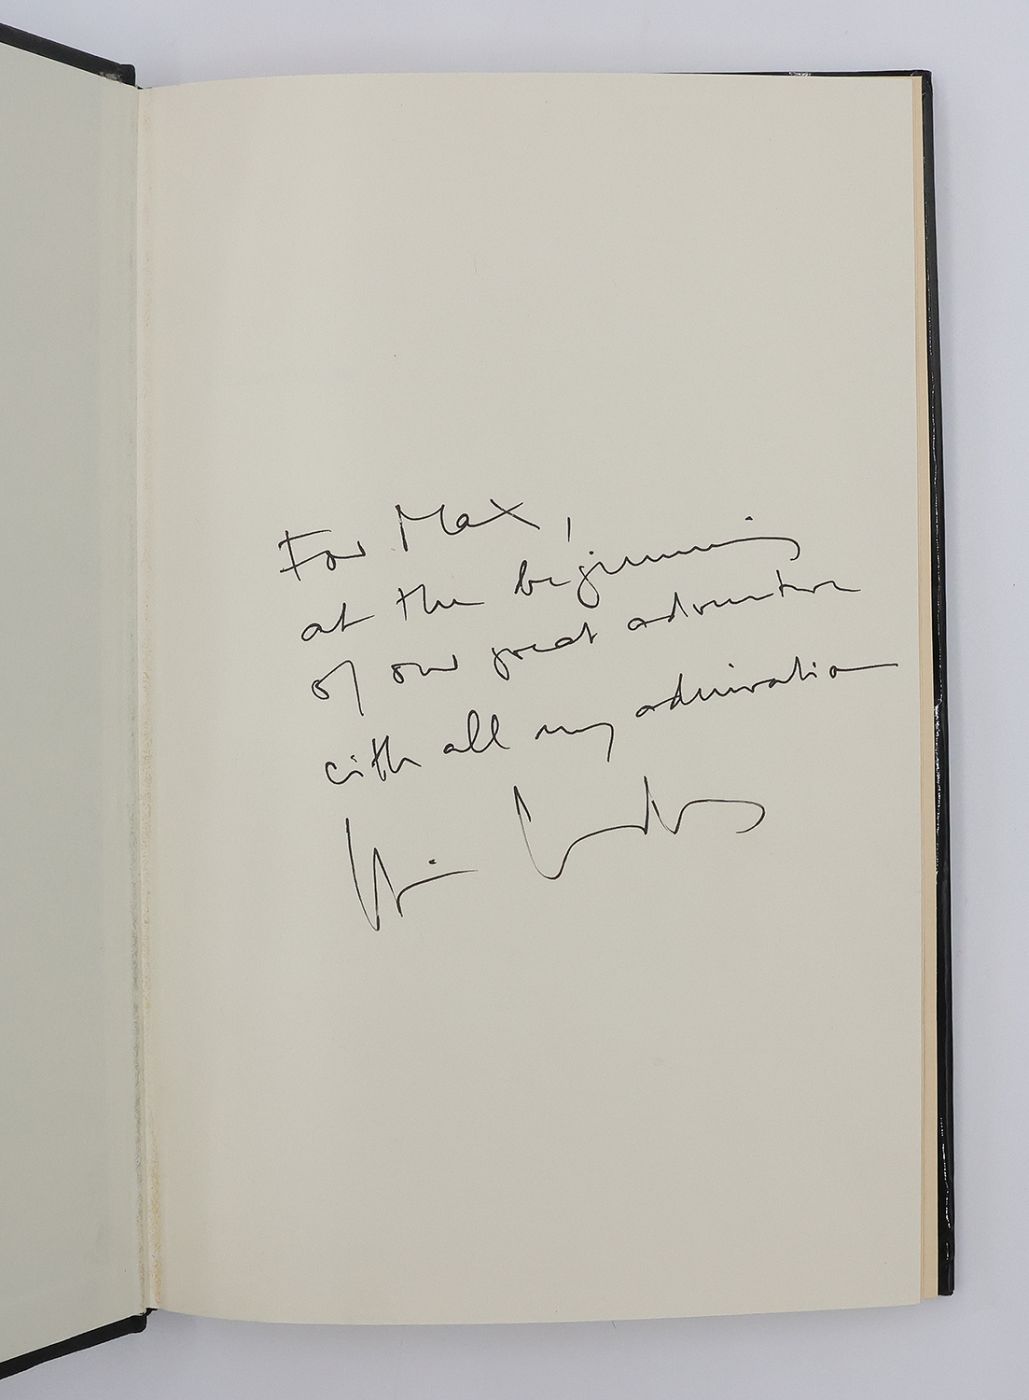 For Max,
at the beginning
of our great adventure
with all my admiration